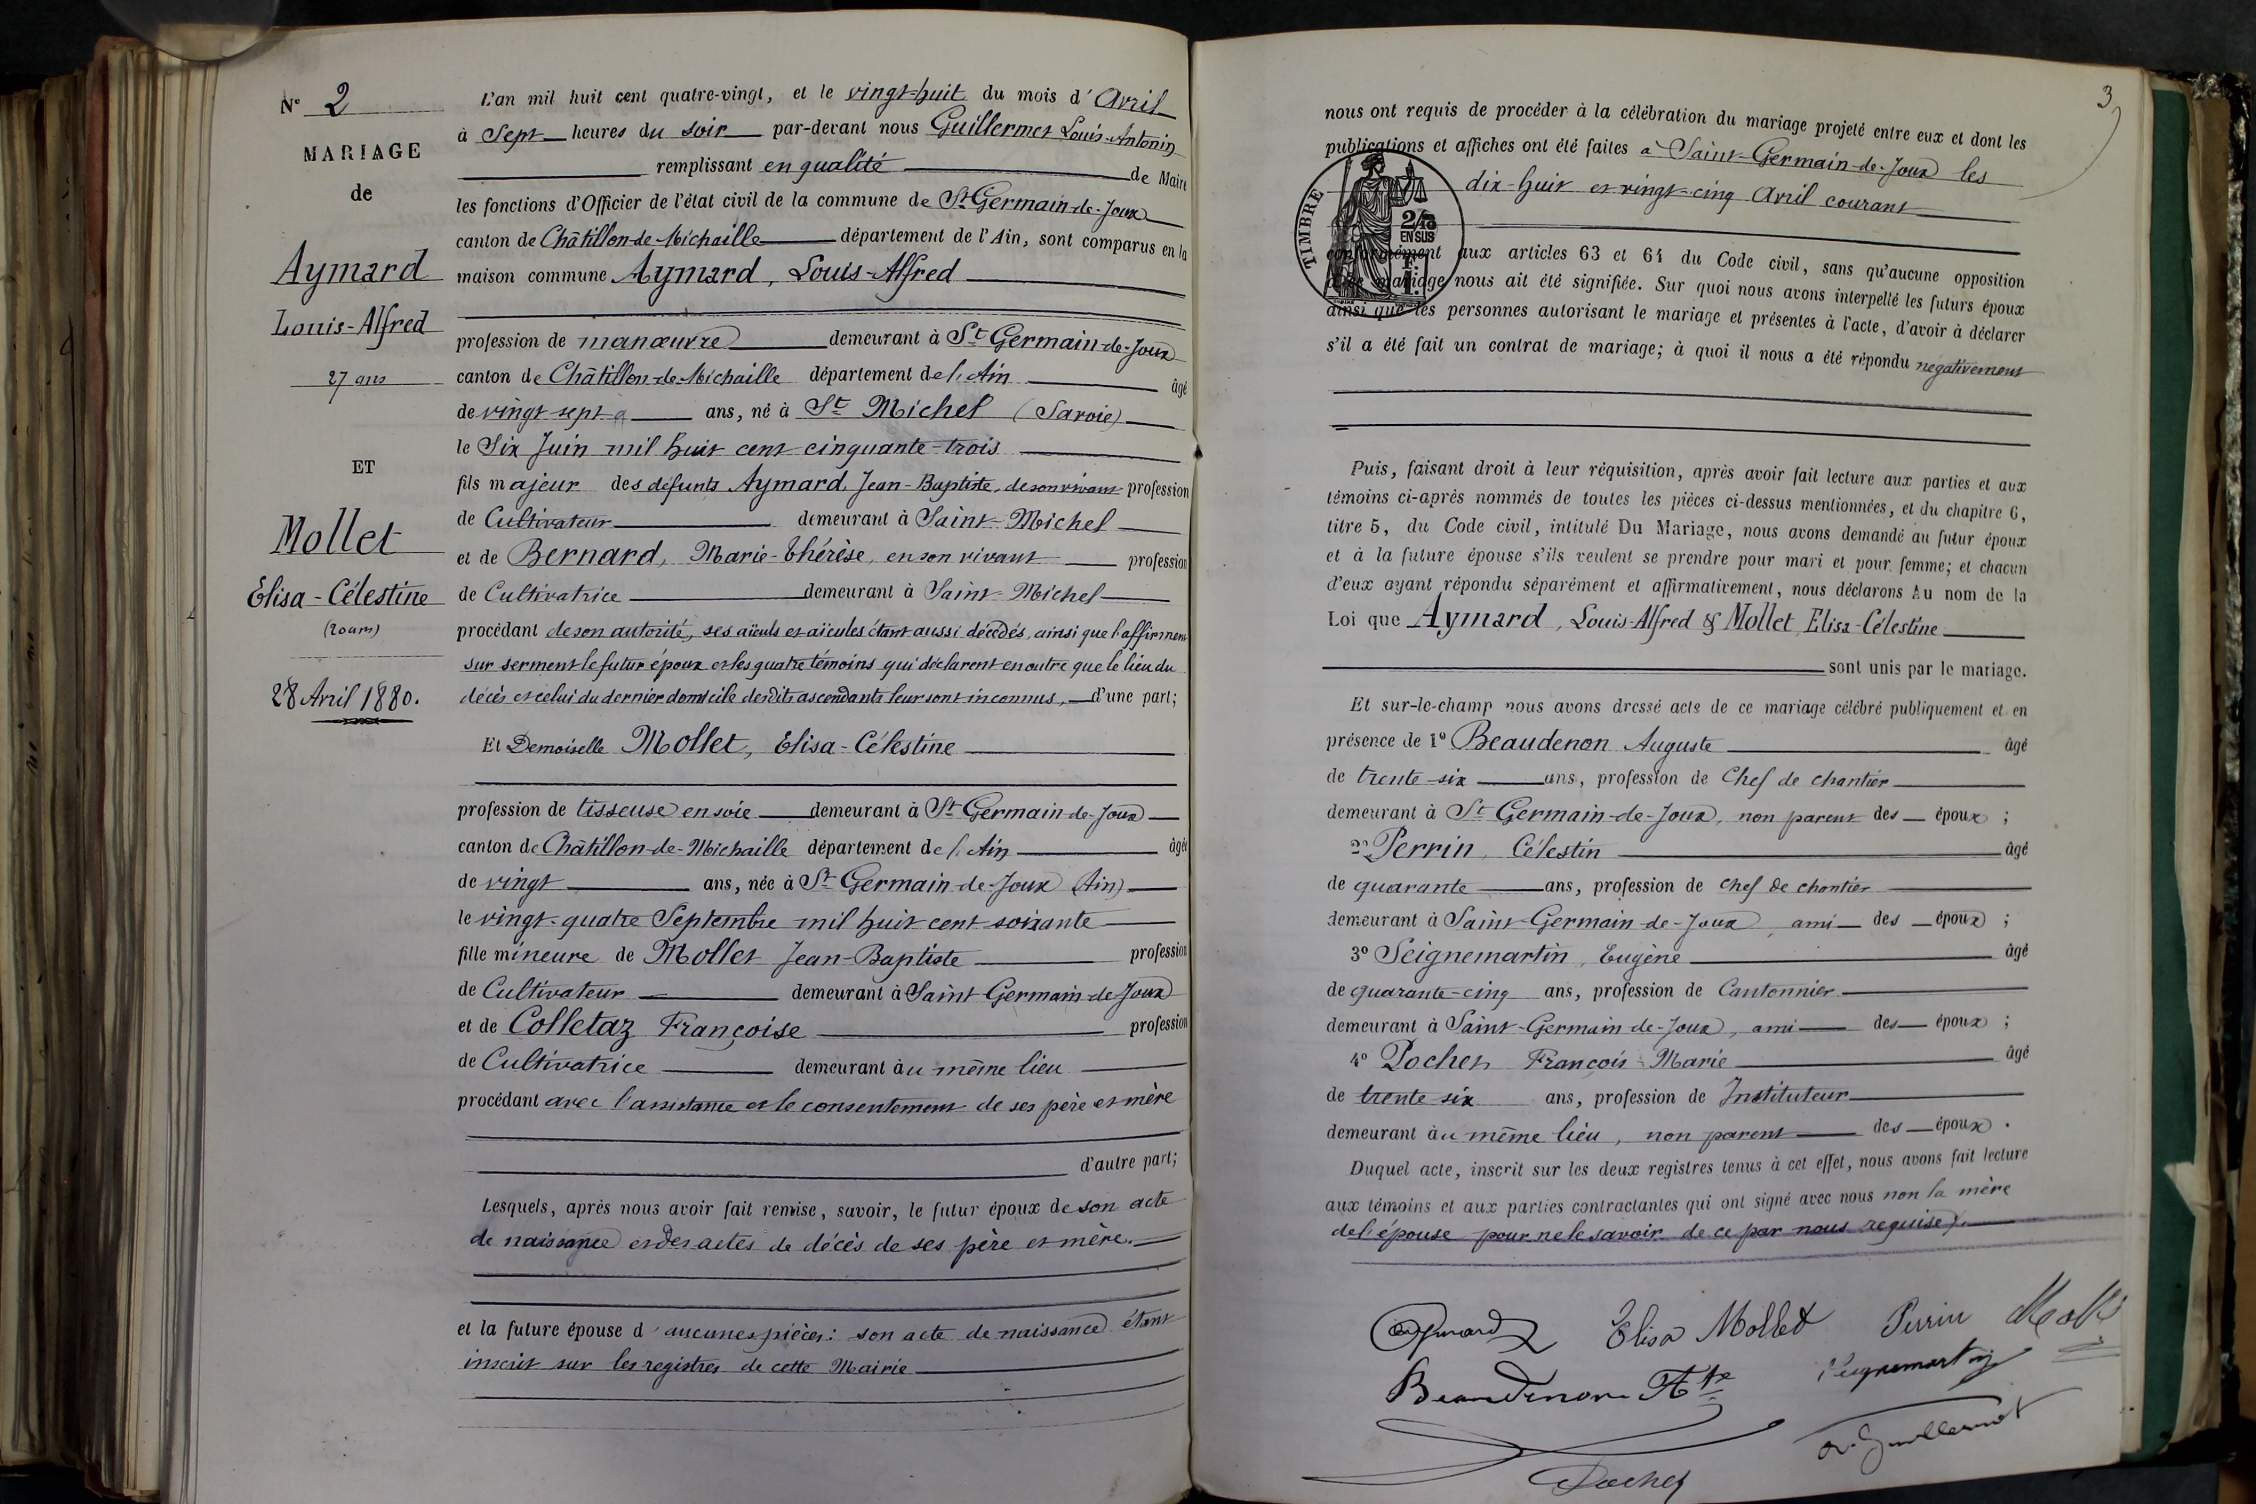 N° 2
MARIAGE
de
Aymard
Louis-Alfred
27 ans
ET
Mollet
Elisa-Célestine
(20 ans)
28 Avril 1880.
L'an mil huit cent quatre-vingt, et le vingt-huit du mois d'Avril
à Sept heures du soir par-devant nous Guillermet Louis-Antonin
remplissant en qualité de Maire
les fonctions d'Officier de l'état civil de la commune de St Germain-de-Joux
canton de Châtillon-de-Michaille département de l'Ain, sont comparus en la
maison commune Aymard, Louis-Alfred
profession de manœuvre demeurant à St Germain-de-Joux
canton de Châtillon-de-Michaille département de l'Ain âgé
de vingt sept ans, né à St Michel (Savoie)
le Six Juin mil huit cent cinquante-trois
fils majeur des défunts Aymard, Jean-Baptiste, de son vivant profession
de Cultivateur demeurant à Saint-Michel
et de Bernard, Marie-Thérèse, en son vivant profession
de Cultivatrice demeurant à Saint-Michel
procédant de son autorité, ses aïeuls et aïeules étant aussi décédés, ainsi que l'affirment
sur serment le futur époux et les quatre témoins qui déclarent en outre que le lieu du
décès et celui du dernier domicile desdits ascendants leur sont inconnus, d'une part;
Et Demoiselle Mollet, Elisa-Célestine
profession de tisseuse en soie demeurant à St Germain-de-Joux
canton de Châtillon-de-Michaille département de l'Ain âgée
de vingt ans, née à St Germain-de-Joux (Ain)
le vingt-quatre Septembre mil huit cent soixante
fille mineure de Mollet Jean-Baptiste profession
de Cultivateur demeurant à Saint Germain-de-Joux
et de Colletaz Françoise profession
de Cultivatrice demeurant au même lieu
procédant avec l'assistance et le consentement de ses père et mère
d'autre part;
Lesquels, après nous avoir fait remise, savoir, le futur époux de son acte
de naissance et des actes de décès de ses père et mère.
et la future épouse d'aucunes pièces: son acte de naissance étant
inscrit sur les registres de cette Mairie
3
nous ont requis de procéder à la célébration du mariage projeté entre eux et dont les
publications et affiches ont été faites à Saint-Germain-de-Joux les
dix-huit et vingt-cinq Avril courant
TIMBRE
2/10
EN SUS
conformément aux articles 63 et 64 du Code civil, sans qu'aucune opposition
à ce mariage nous ait été signifiée. Sur quoi nous avons interpellé les futurs époux
ainsi que les personnes autorisant le mariage et présentes à l'acte, d'avoir à déclarer
s'il a été fait un contrat de mariage; à quoi il nous a été répondu négativement
Puis, faisant droit à leur réquisition, après avoir fait lecture aux parties et aux
témoins ci-après nommés de toutes les pièces ci-dessus mentionnées, et du chapitre 6,
titre 5, du Code civil, intitulé Du Mariage, nous avons demandé au futur époux
et à la future épouse s'ils veulent se prendre pour mari et pour femme; et chacun
d'eux ayant répondu séparément et affirmativement, nous déclarons Au nom de la
Loi que Aymard, Louis-Alfred & Mollet, Elisa-Célestine
sont unis par le mariage.
Et sur-le-champ nous avons dressé acte de ce mariage célébré publiquement et en
présence de 1° Beaudenon Auguste âgé
de trente-six ans, profession de Chef de chantier
demeurant à St Germain-de-Joux, non parent des époux ;
2° Perrin, Célestin âgé
de quarante ans, profession de chef de chantier
demeurant à Saint-Germain-de-Joux, ami des époux ;
3° Seignemartin, Eugène âgé
de quarante-cinq ans, profession de Cantonnier
demeurant à Saint-Germain-de-Joux, ami des époux ;
4° Pochet François-Marie âgé
de trente six ans, profession de Instituteur
demeurant au même lieu, non parent des époux.
Duquel acte, inscrit sur les deux registres tenus à cet effet, nous avons fait lecture
aux témoins et aux parties contractantes qui ont signé avec nous non la mère
de l'épouse pour ne le savoir de ce par nous requise).
Aymard Elisa Mollet Perrin Mollet
Beaudenon Seignemartin
Guillermet
Pochet